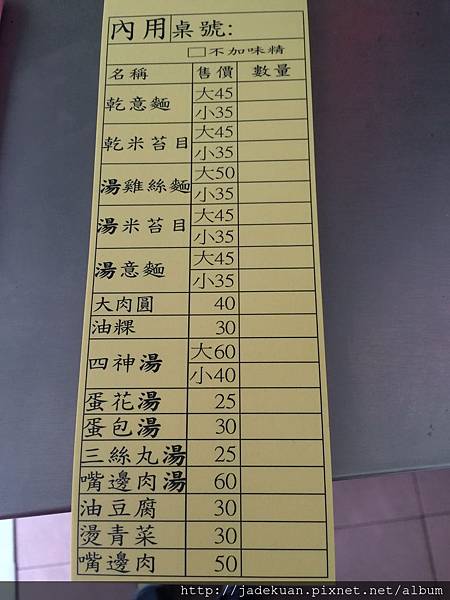 內用桌號:
□不加味精
名稱 售價 數量
乾意麵 大45
小35
乾米苔目 大45
小35
湯雞絲麵 大50
小35
湯米苔目 大45
小35
湯意麵 大45
小35
大肉圓 40
油粿 30
四神湯 大60
小40
蛋花湯 25
蛋包湯 30
三絲丸湯 25
嘴邊肉湯 60
油豆腐 30
燙青菜 30
嘴邊肉 50
http://jadekuan.pixnet.net/album